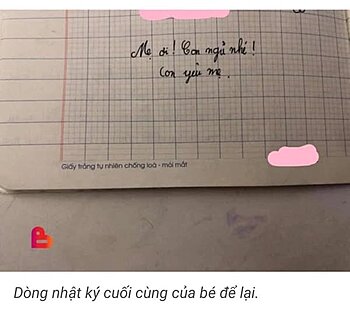 Mẹ ơi! Con ngủ nhé!
Con yêu mẹ.
Giấy trắng tự nhiên chống loá - mỏi mắt
Dòng nhật ký cuối cùng của bé để lại.